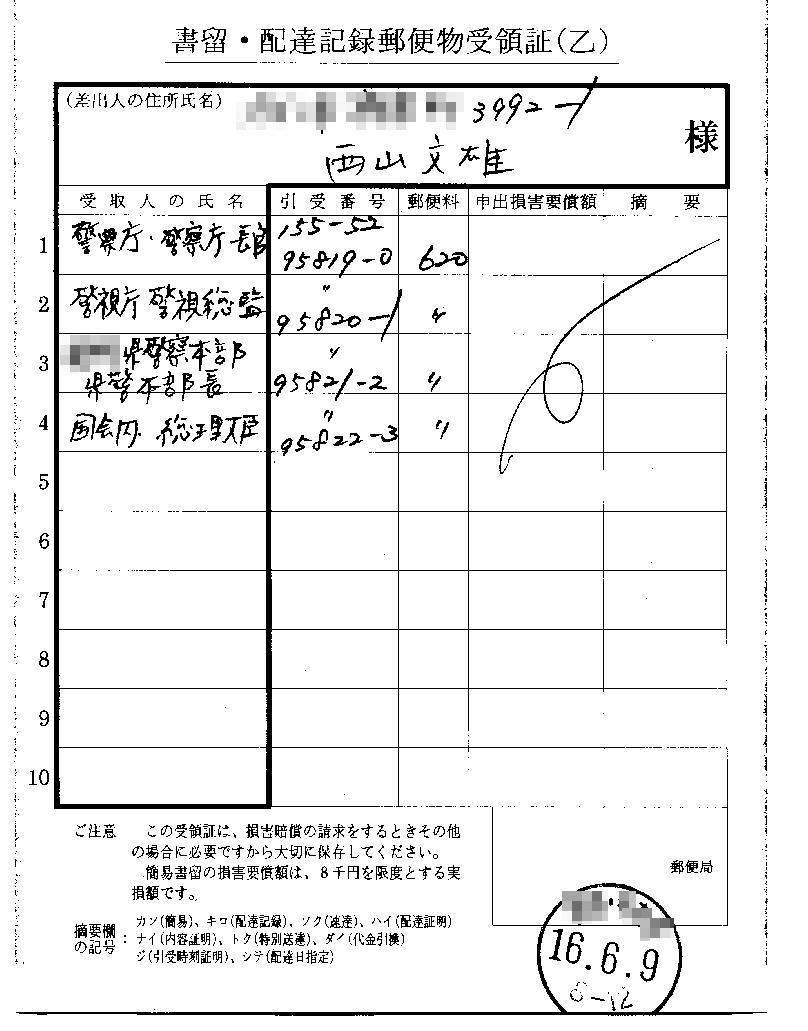 書留・配達記録郵便物受領証(乙)
(差出人の住所氏名)
3992-1
西山文雄
様
受取人の氏名 引受番号 郵便料 申出損害要償額 摘要
1 警察庁・警察庁長官 155-52 95819-0 620
2 警視庁 警視総監 〃 95820-1 〃
3 県警察本部 県警本部長 〃 95821-2 〃
4 国会内 総理大臣 〃 95822-3 〃
5
6
7
8
9
10
ご注意 この受領証は、損害賠償の請求をするときその他
の場合に必要ですから大切に保存してください。
簡易書留の損害要償額は、8千円を限度とする実
損額です。
郵便局
摘要欄の記号: カン(簡易)、キロ(配達記録)、ソク(速達)、ハイ(配達証明)
ナイ(内容証明)、トク(特別送達)、ダイ(代金引換)
ジ(引受時刻証明)、シテ(配達日指定)
16.6.9
8-12